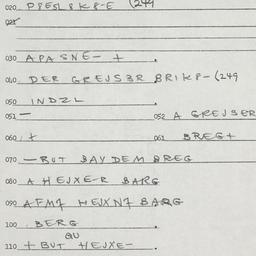 020 PRESL 8 K8-E (249
021
030 APASNE- +
040 DER GREJSER BRIK8-(249
050 INDZL
051 - 052 A GREJSER
060 + 061 BREG+
070 -BUT BAV DEM BREG
080 A HEJXE-R BARG
090 AFM1 HEJXN1 BARG
100 . BERG
QU
110 + BUT HEJXE-